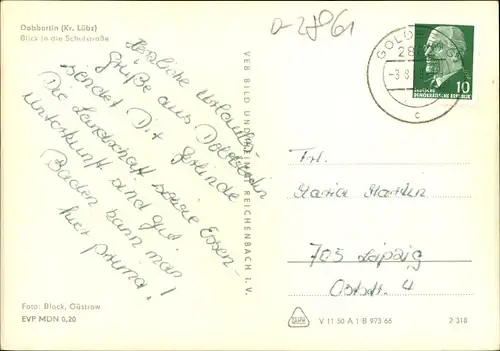 Dobbertin (Kr. Lübz)
Blick in die Schulstraße
D-2861
Herzliche Urlaubs-
grüße aus Dobbertin
sendet Dir Gerlinde
Die Landschaft sowie Essen-
Unterkunft sind gut.
Baden kann man
hier prima!
VEB BILD UND HEIMAT REICHENBACH I. V.
GOLDBERG
-3.8.
c
DEUTSCHE
DEMOKRATISCHE REPUBLIK
10
Frl.
Maria Martin
705 Leipzig
Oststr. 4
Foto: Block, Güstrow
EVP MDN 0,20
V 11 50 A 1/B 973/66
2/318